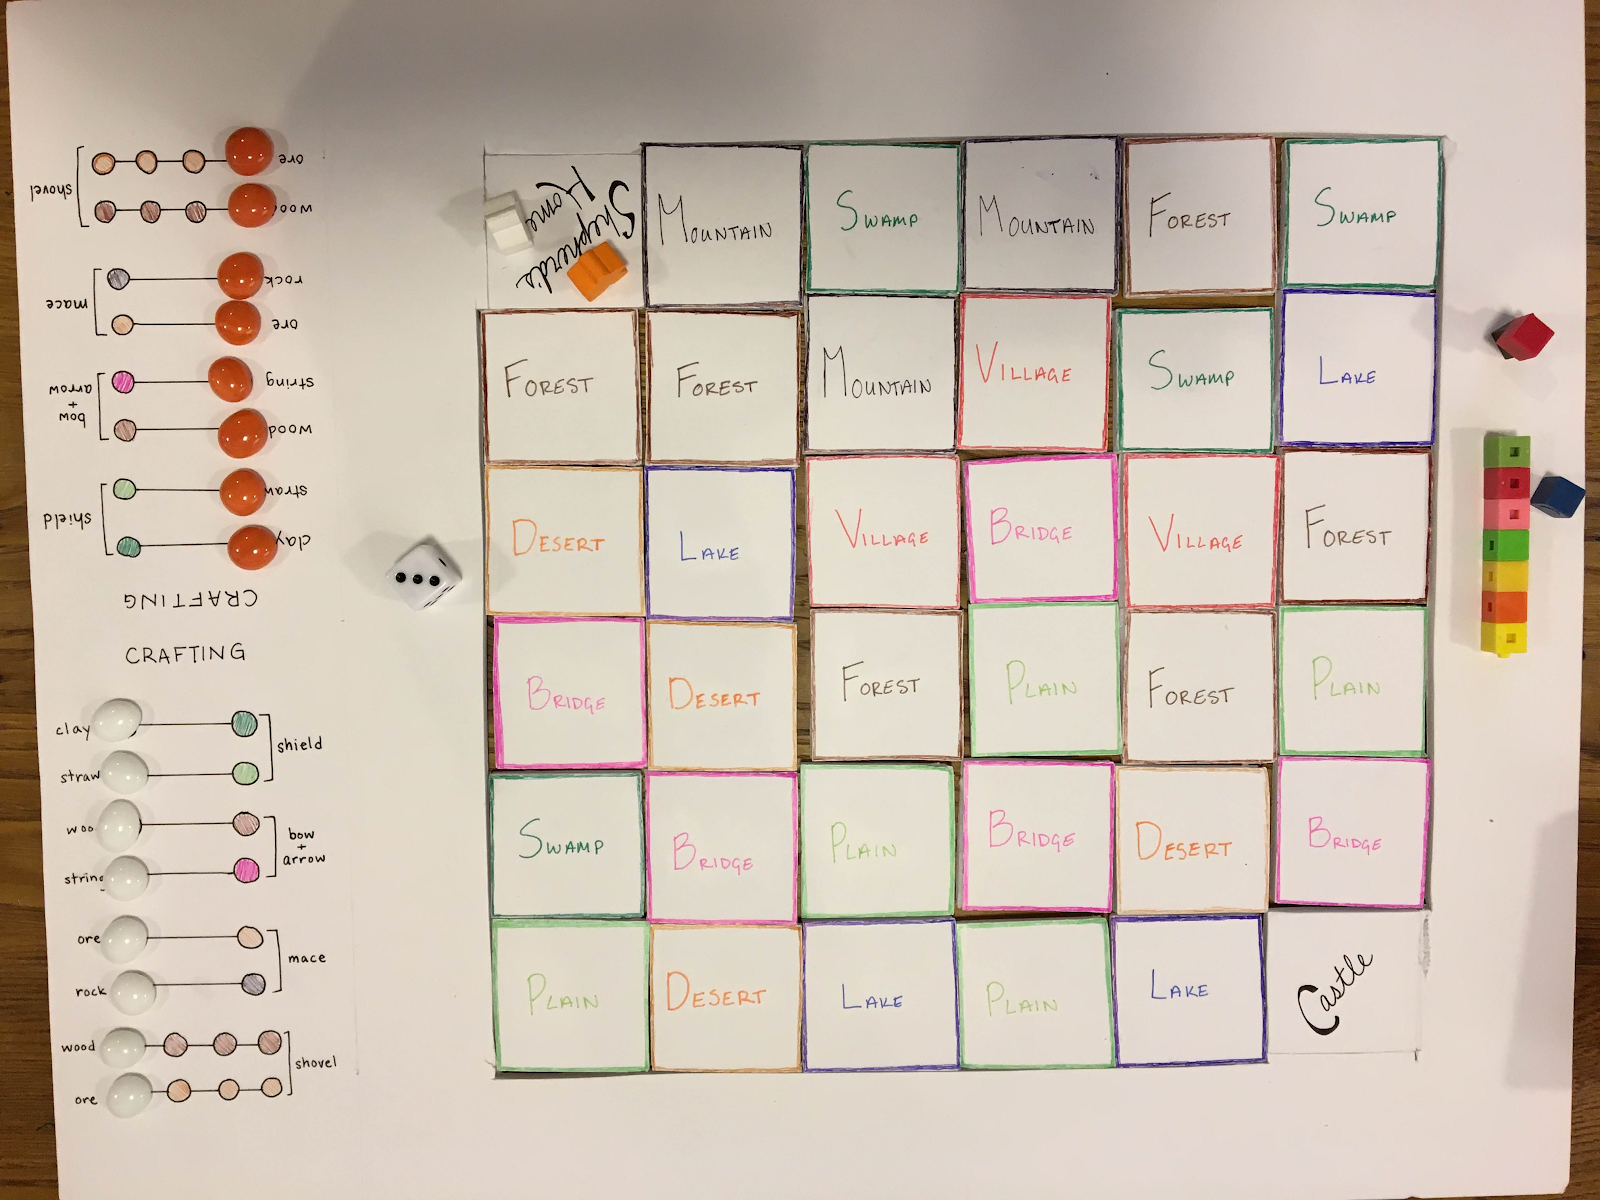 ore
shovel
rock
mace
ore
string
bow
+
arrow
wood
straw
shield
clay
CRAFTING
CRAFTING
clay
shield
straw
bow
+
arrow
string
ore
mace
rock
wood
shovel
ore
Shepherd's
Home
MOUNTAIN
SWAMP
MOUNTAIN
FOREST
SWAMP
FOREST
FOREST
MOUNTAIN
VILLAGE
SWAMP
LAKE
DESERT
LAKE
VILLAGE
BRIDGE
VILLAGE
FOREST
BRIDGE
DESERT
FOREST
PLAIN
FOREST
PLAIN
SWAMP
BRIDGE
PLAIN
BRIDGE
DESERT
BRIDGE
PLAIN
DESERT
LAKE
PLAIN
LAKE
Castle